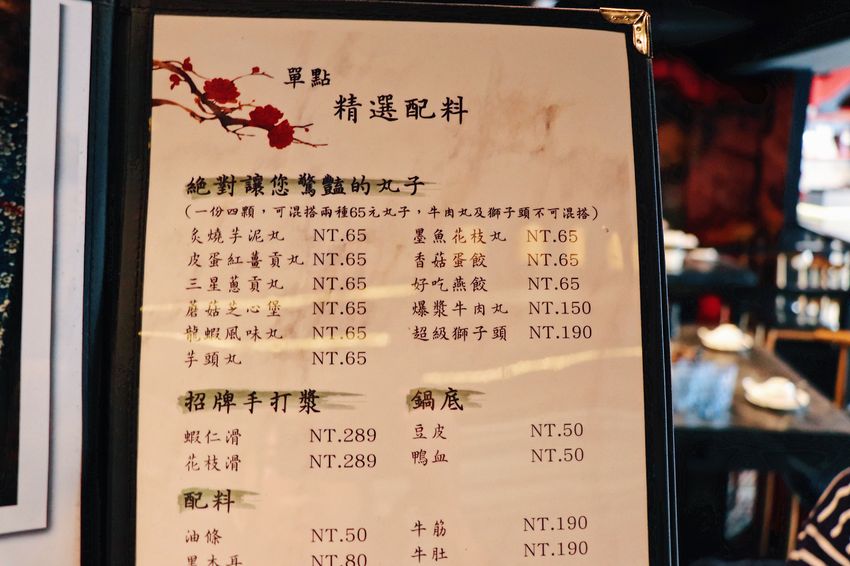 單點
精選配料
絕對讓您驚豔的丸子
(一份四顆，可混搭兩種65元丸子，牛肉丸及獅子頭不可混搭)
炙燒芋泥丸 NT.65
皮蛋紅薑貢丸 NT.65
三星蔥貢丸 NT.65
蘑菇芝心堡 NT.65
龍蝦風味丸 NT.65
芋頭丸 NT.65
墨魚花枝丸 NT.65
香菇蛋餃 NT.65
好吃燕餃 NT.65
爆漿牛肉丸 NT.150
超級獅子頭 NT.190
招牌手打漿
蝦仁滑 NT.289
花枝滑 NT.289
鍋底
豆皮 NT.50
鴨血 NT.50
配料
油條 NT.50
黑木耳 NT.80
牛筋 NT.190
牛肚 NT.190